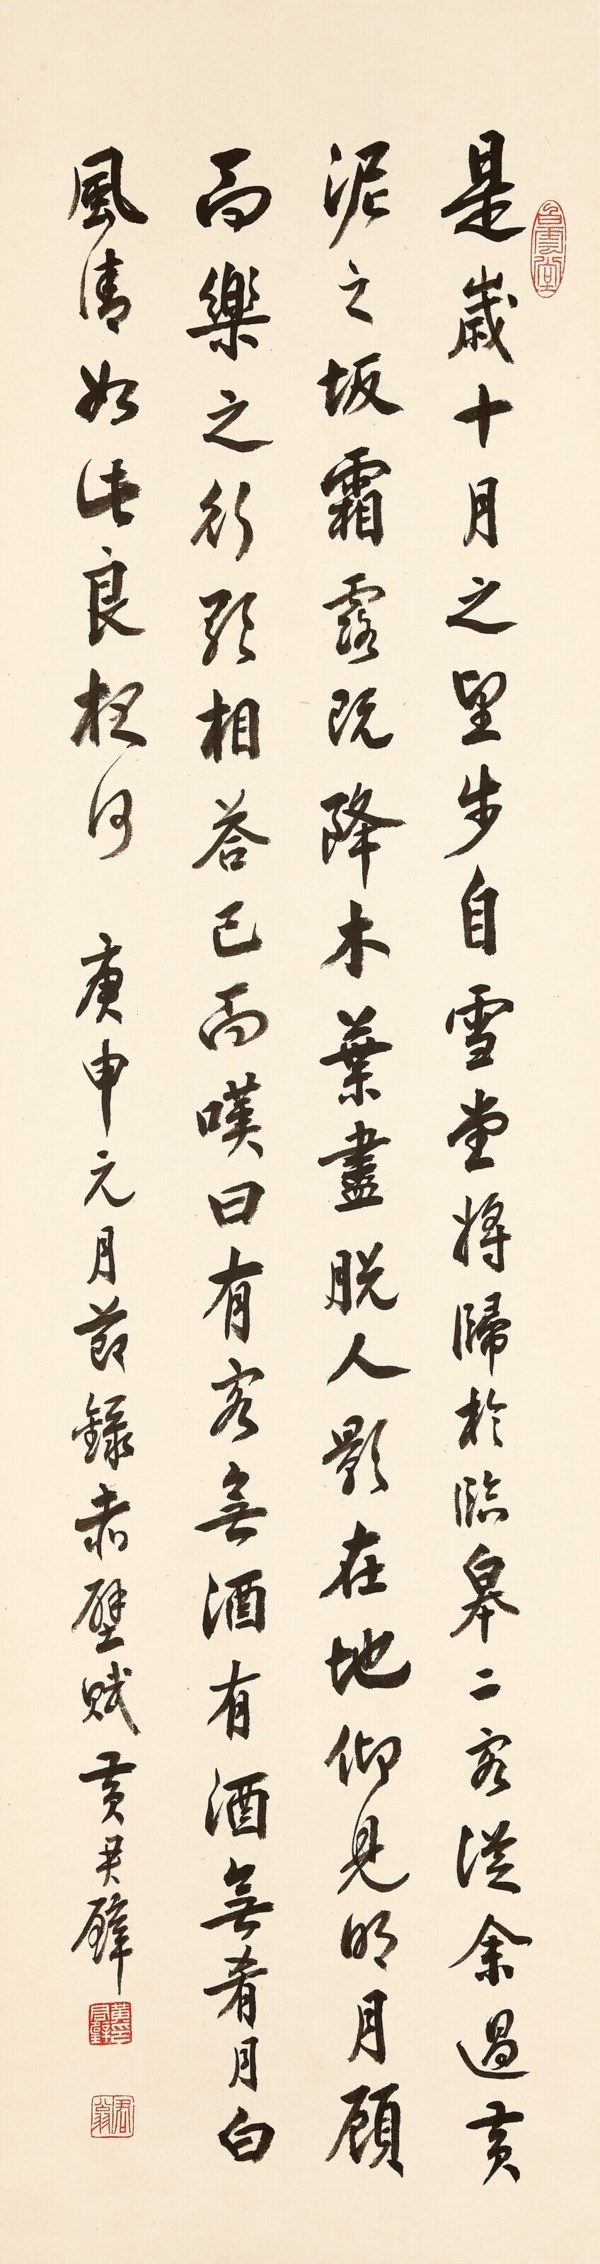 是歲十月之望步自雪堂將歸於臨皋二客從余過黃
泥之坂霜露既降木葉盡脫人影在地仰見明月顧
而樂之行歌相答已而嘆曰有客無酒有酒無肴月白
風清如此良夜何　庚申元月節錄赤壁賦黃君璧
白雲堂
黃君璧印
君翁